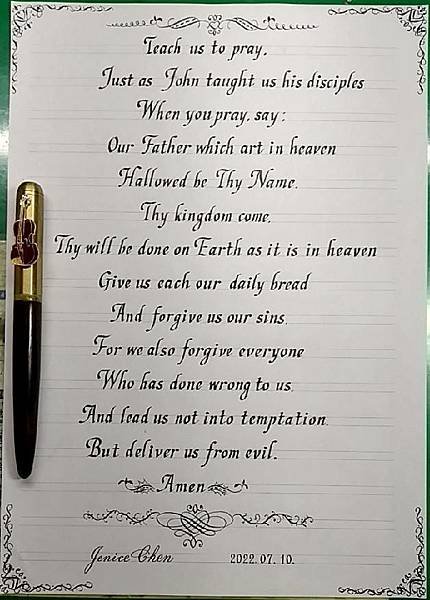 Teach us to pray,
Just as John taught us his disciples
When you pray, say:
Our Father which art in heaven
Hallowed be Thy Name.
Thy kingdom come,
Thy will be done on Earth as it is in heaven
Give us each our daily bread
And forgive us our sins.
For we also forgive everyone
Who has done wrong to us.
And lead us not into temptation.
But deliver us from evil.
Amen
Jenice Chen 2022.07.10.